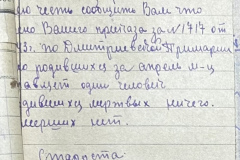 ею честь сообщить Вам что
но Вашего приказа за № 1717 от
3г. по Дмитриевской Примарии
ло родившихся за апрель м-ц
авляет один человек
дившихся мертвых ничего.
мерших нет.
Староста